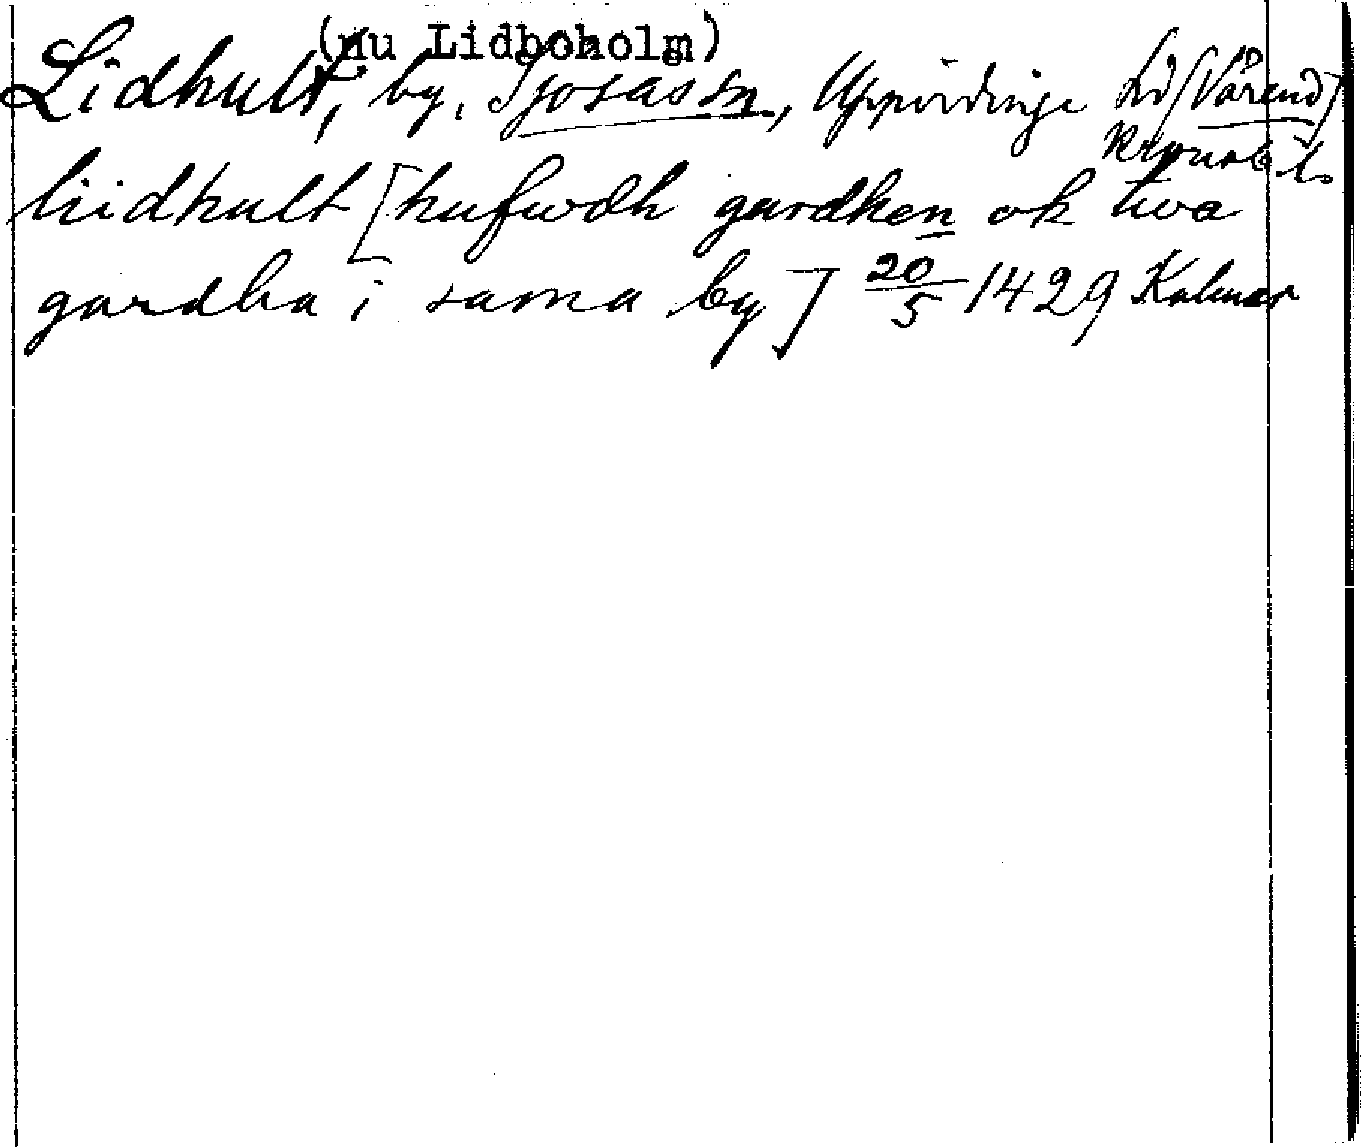 (nu Lidboholm)
Lidhult, by, Sjösås sn, Uppvidinge hd [Värend]
Kronob. l.
liidhult [hufwdh gardhen ok twa
gardha i sama by] 20/5 1429 Kalmar